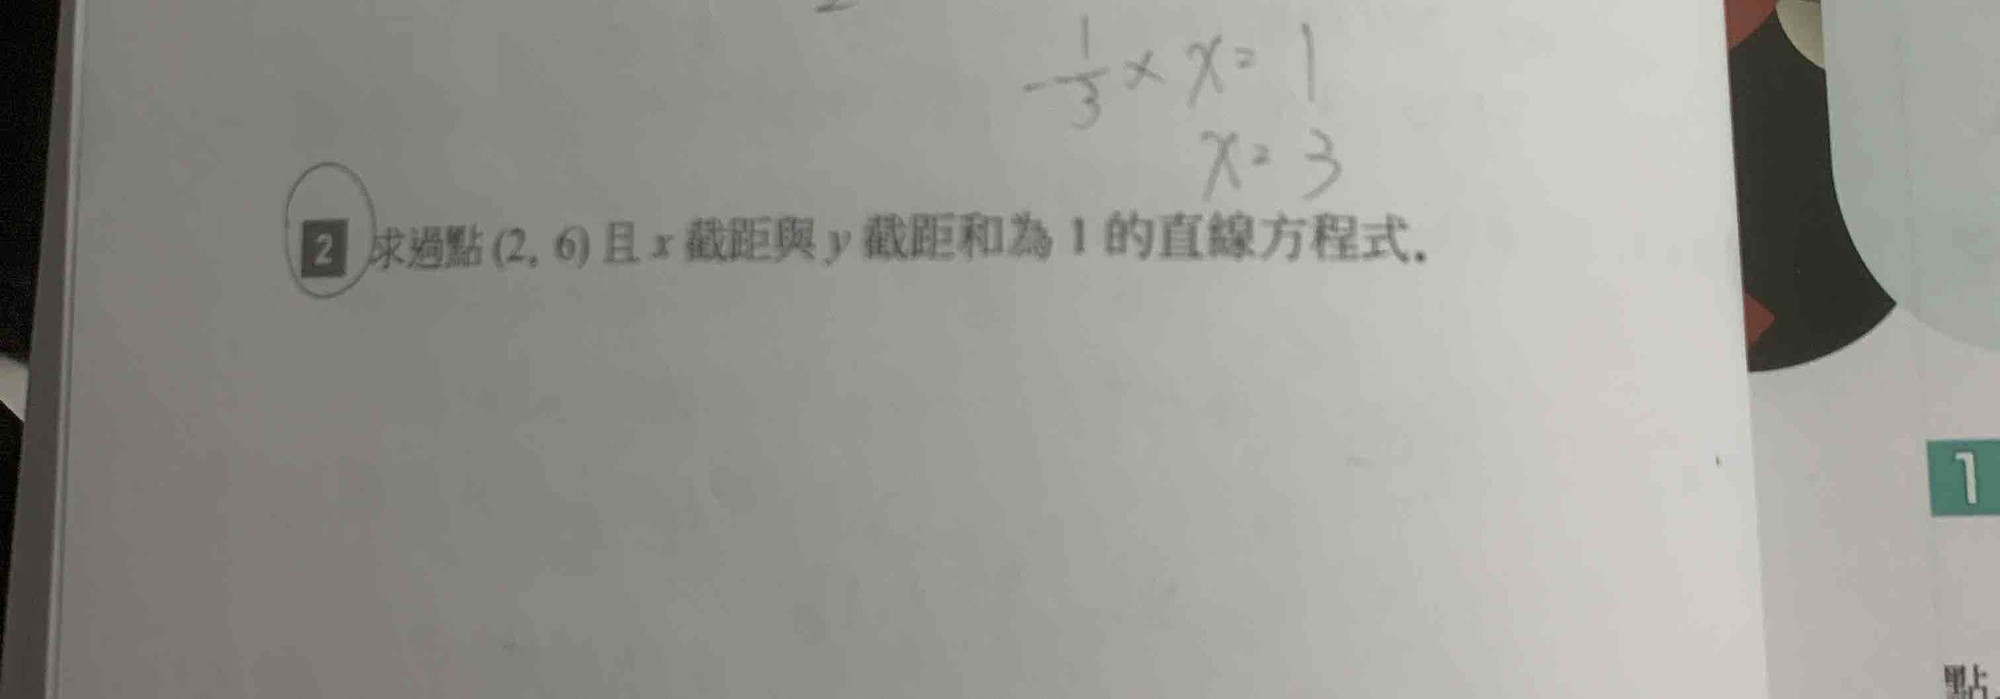 1/3 × x = 1
x = 3
2 求過點 (2, 6) 且 x 截距與 y 截距和為 1 的直線方程式.
1
點